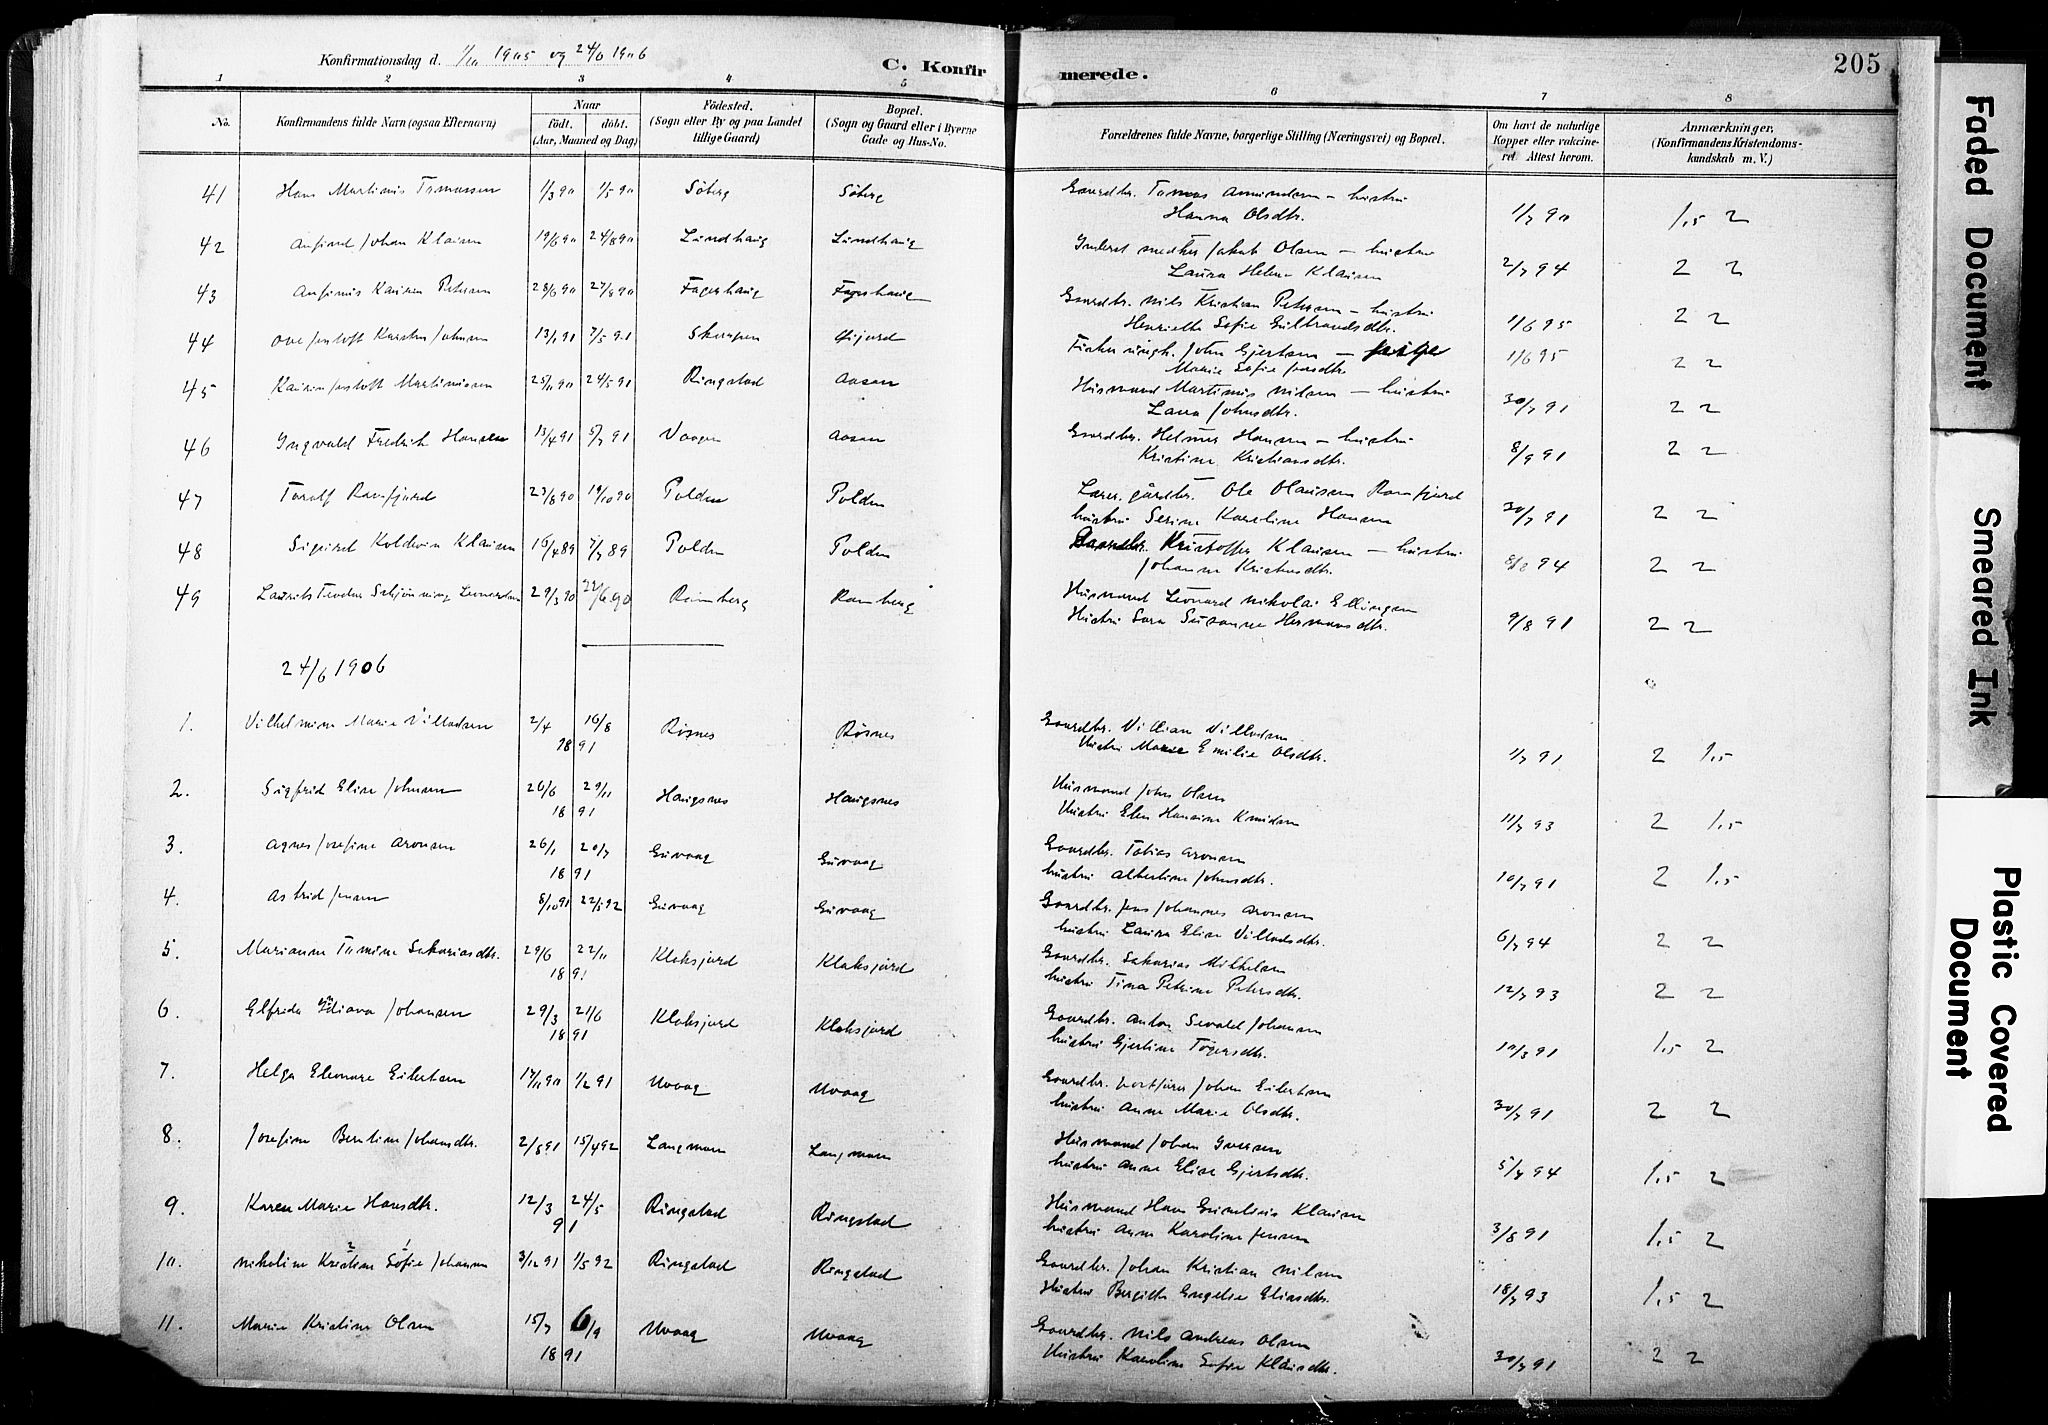 Konfirmationsdag d. 1/10 1905 og 24/6 1906
C. Konfirmerede.
205
1 2 3 4 5 6 7 8
No.
Konfirmandens fulde Navn (ogsaa Efternavn)
Naar
født. døbt.
(Aar, Maaned og Dag)
Fødested.
(Sogn eller By og paa Landet
tillige Gaard)
Bopæl.
(Sogn og Gaard eller i Byerne
Gade og Hus-No.
Forældrenes fulde Navne, borgerlige Stilling (Næringsvei) og Bopæl.
Om havt de naturlige
Kopper eller vakcine-
ret. Attest herom.
Anmærkninger.
(Konfirmandens Kristendoms-
kundskab m. V.)
41 Hans Martinus Tomassen 1/3 90 1/5 90 Søberg Søberg Gaardbr. Tomas Amundsen – hustru
Hanna Olsdtr. 1/7 90 1,5 2
42 Anfind Johan Klausen 19/6 90 24/8 90 Lundhaug Lundhaug Jakob Olsen – hustru
Laura Helene Klausen 2/7 94 2 2
43 Petersen 28/6 90 27/8 90 Fagerhaug Fagerhaug Gaardbr. Nils Kristian Petersen – hustru
Henriette Sofie 1/6 95 2 2
44 Ove Jentoft Karsten Johnsen 13/1 91 7/5 91 Gjerstsen – pige
Marie Sofie Jensdtr. 1/6 95 2 2
45 Jentoft Martinussen 25/11 90 24/5 91 Ringstad Aasan Husmand Martinus Nilsen – hustru
Lava Johnsdtr. 30/7 91 2 2
46 Ingvald Fredrik Hansen 13/4 91 5/7 91 Vaagen Aasan Gaardbr. Helmer Hansen – hustru
Kristine Kristiansdtr. 8/9 91 2 2
47 Torolf Ramfjord 23/8 90 19/10 90 Polden Polden Lærer, gårdbr. Ole Olausen Ramfjord
hustru Serine Karoline Hansen 30/7 91 2 2
48 Sigurd Koldevin Klausen 16/4 89 7/7 89 Polden Polden Gaardbr. Kristoffer Klausen – hustru
Johanna Kristensdtr. 8/8 94 2 2
49 Laurits Teodor Schjønning Leonardsen 29/3 90 22/6 90 Ramberg Ramberg Husmand Leonard Nikolai Ellingsen
Hustru Sara Susanna Hermansdtr. 9/8 91 2 2
24/6 1906
1. Vilhelmine Marie Villadsen 2/4 16/8 Røsnes Røsnes Gaardbr. Villian Villadsen
1891 Hustru Marie Emilie Olsdtr. 1/7 91 2 1,5
2. Sigfrid Elise Johnsen 26/6 29/11 Haugsnes Haugsnes Husmand John Olsen
1891 Hustru Elen Hansine Knudsen 11/7 93 2 1,5
3. Agnes Josefine Aronsen 26/1 20/7 Guvaag Guvaag Gaardbr. Tobias Aronsen
1891 hustru Albertine Johnsdtr. 10/7 91 2 1,5
4. Astrid Jensen 8/10 91 22/5 92 Guvaag Guvaag Gaardbr. Jens Johannes Aronsen
hustru Laura Elise Villadsdtr. 6/7 94 2 2
5. Marianne Tomine Sakariasdtr. 29/6 22/11 Klaksjord Klaksjord Gaardbr. Sakarias Mikkelsen
1891 hustru Tina Petrine Petersdtr. 12/7 93 2 2
6. Elfrida Indiana Johansen 29/3 21/6 Klaksjord Klaksjord Gaardbr. Anton Sevald Johansen
1891 hustru Gjertine Tøgersdtr. 10/3 91 1,5 2
7. Helga Eleonore Eilertsen 17/11 90 1/2 91 Uvaag Uvaag Gaardbr. Johan Eilertsen
hustru Anne Marie Olsdtr. 30/7 91 2 2
8. Josefine Berntine Johansdtr. 2/8 91 15/4 92 Langmoen Langmoen Husmand Johan Iversen
hustru Anne Elise Gjertsdtr. 5/7 94 1,5 2
9. Karen Marie Hansdtr. 12/3 24/5 Ringstad Ringstad Husmand Hans Klausen
91 hustru Anne Karoline Jensen 3/8 91 1,5 2
10. Nikoline Kristine Sofie Johansen 3/12 91 1/5 92 Ringstad Ringstad Gaardbr. Johan Kristian Nilsen
Hustru Bergitte Engelse Eliasdtr. 18/7 93 1,5 2
11. Marie Kristine Olsen 15/7 6/9 Uvaag Uvaag Gaardbr. Nils Andreas Olsen
1891 Hustru Karoline Sofie Klausdtr. 30/7 91 2 2
Faded Document
Smeared Ink
Plastic Covered
Document